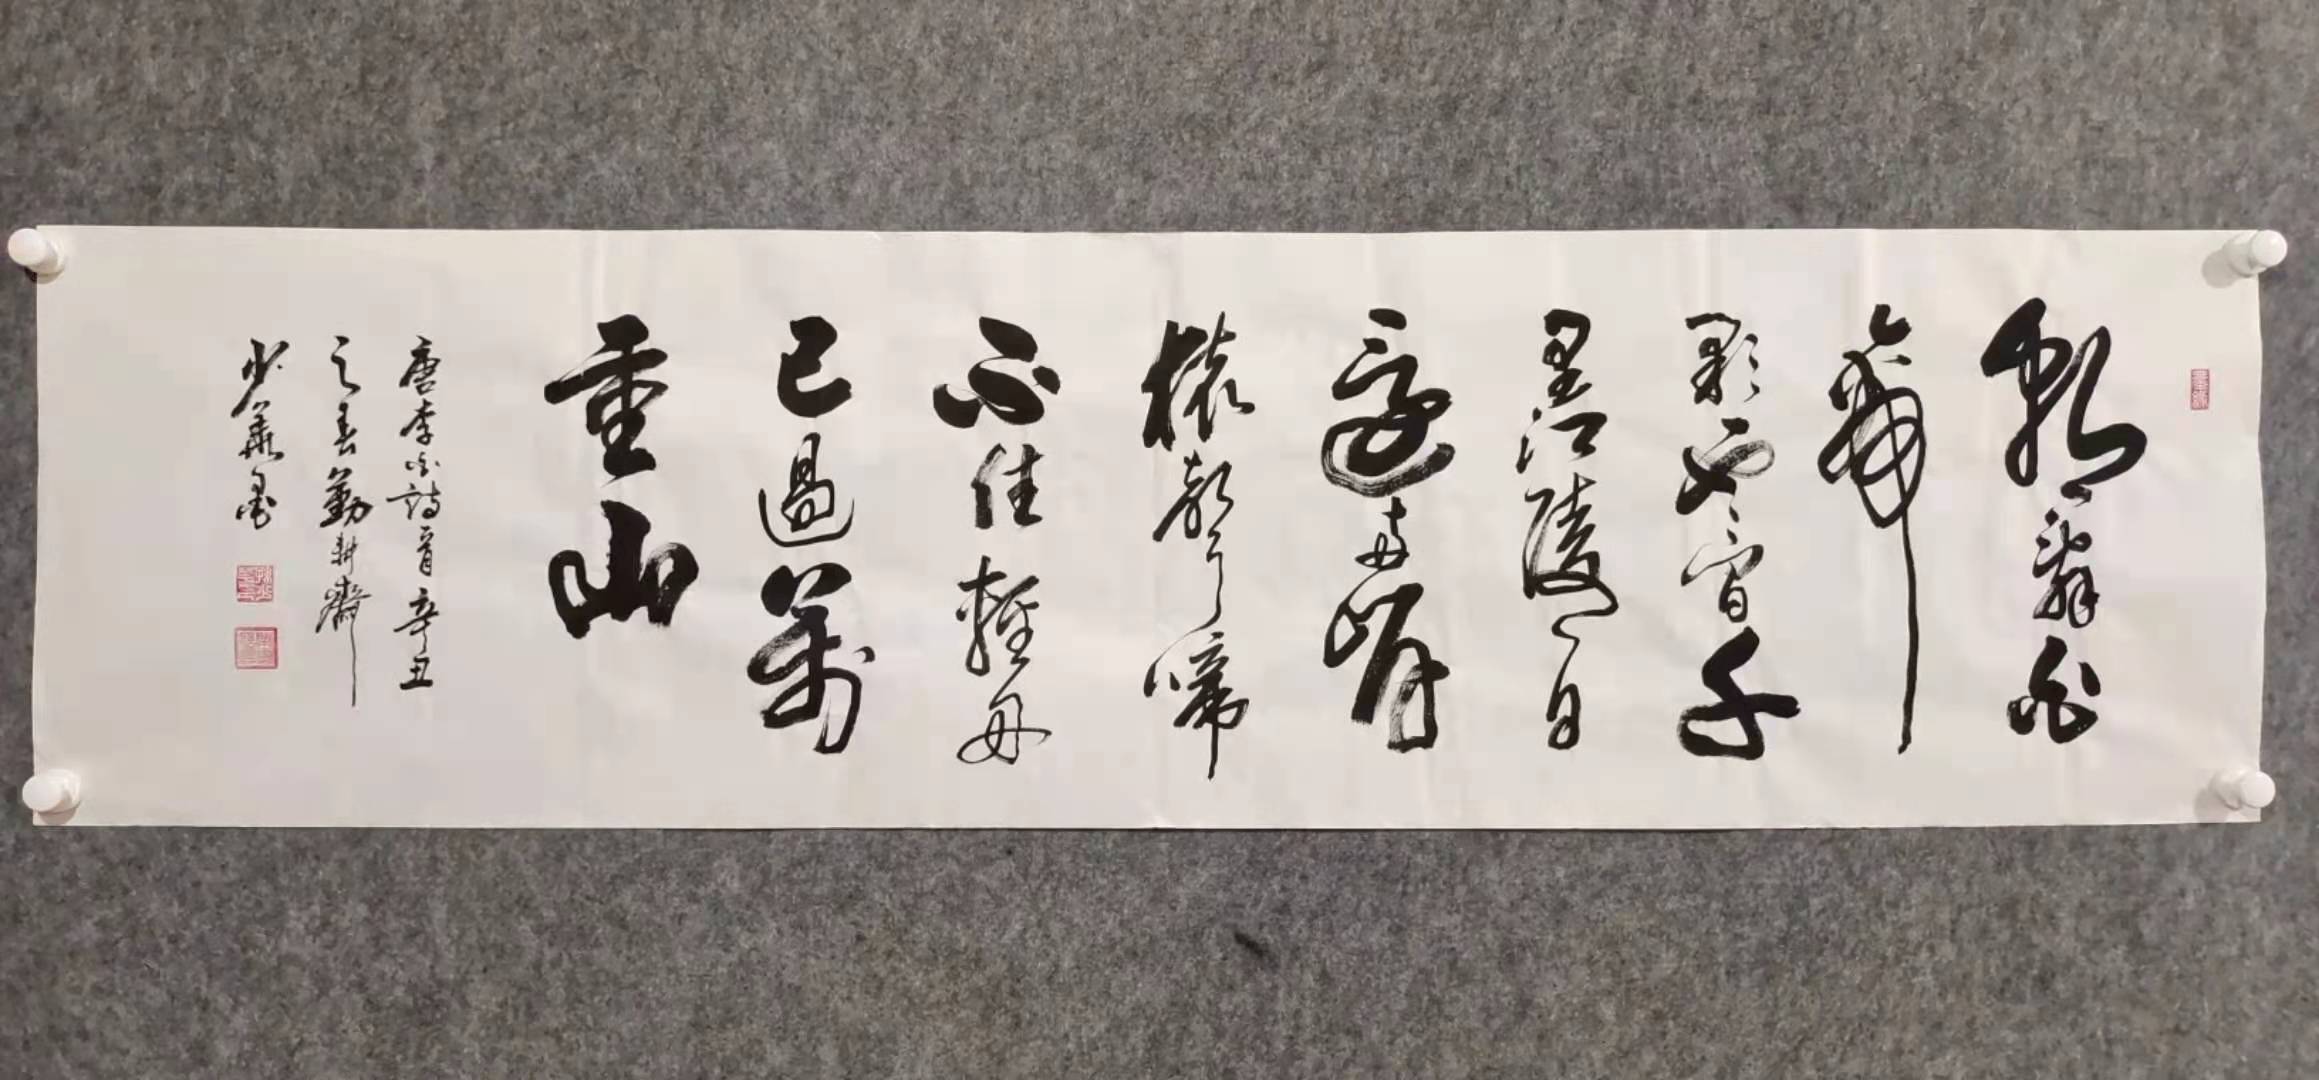 朝辭白
帝
彩雲間千
里江陵一日
還兩岸
猿聲啼
不住輕舟
已過萬
重山
唐李白詩一首辛丑
之春勤耕齋
少華